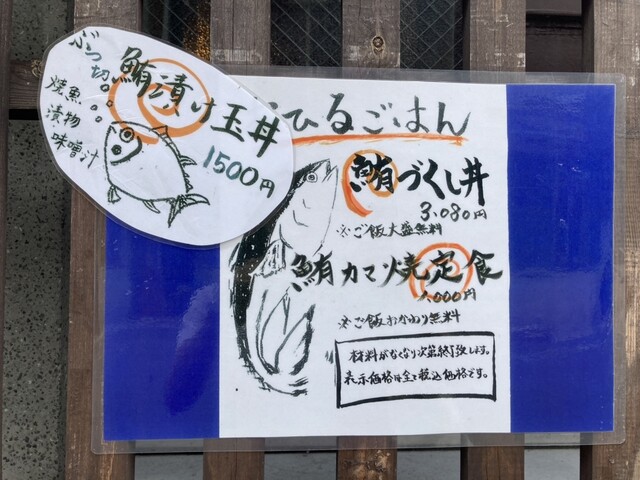 ぶつ切
鮪漬け玉丼
1500円
焼魚
漬物
味噌汁
ひるごはん
鮪づくし丼
3,080円
※ご飯大盛無料
鮪カマ焼定食
1,000円
※ご飯おかわり無料
材料がなくなり次第終了致します。
表示価格は全て税込価格です。